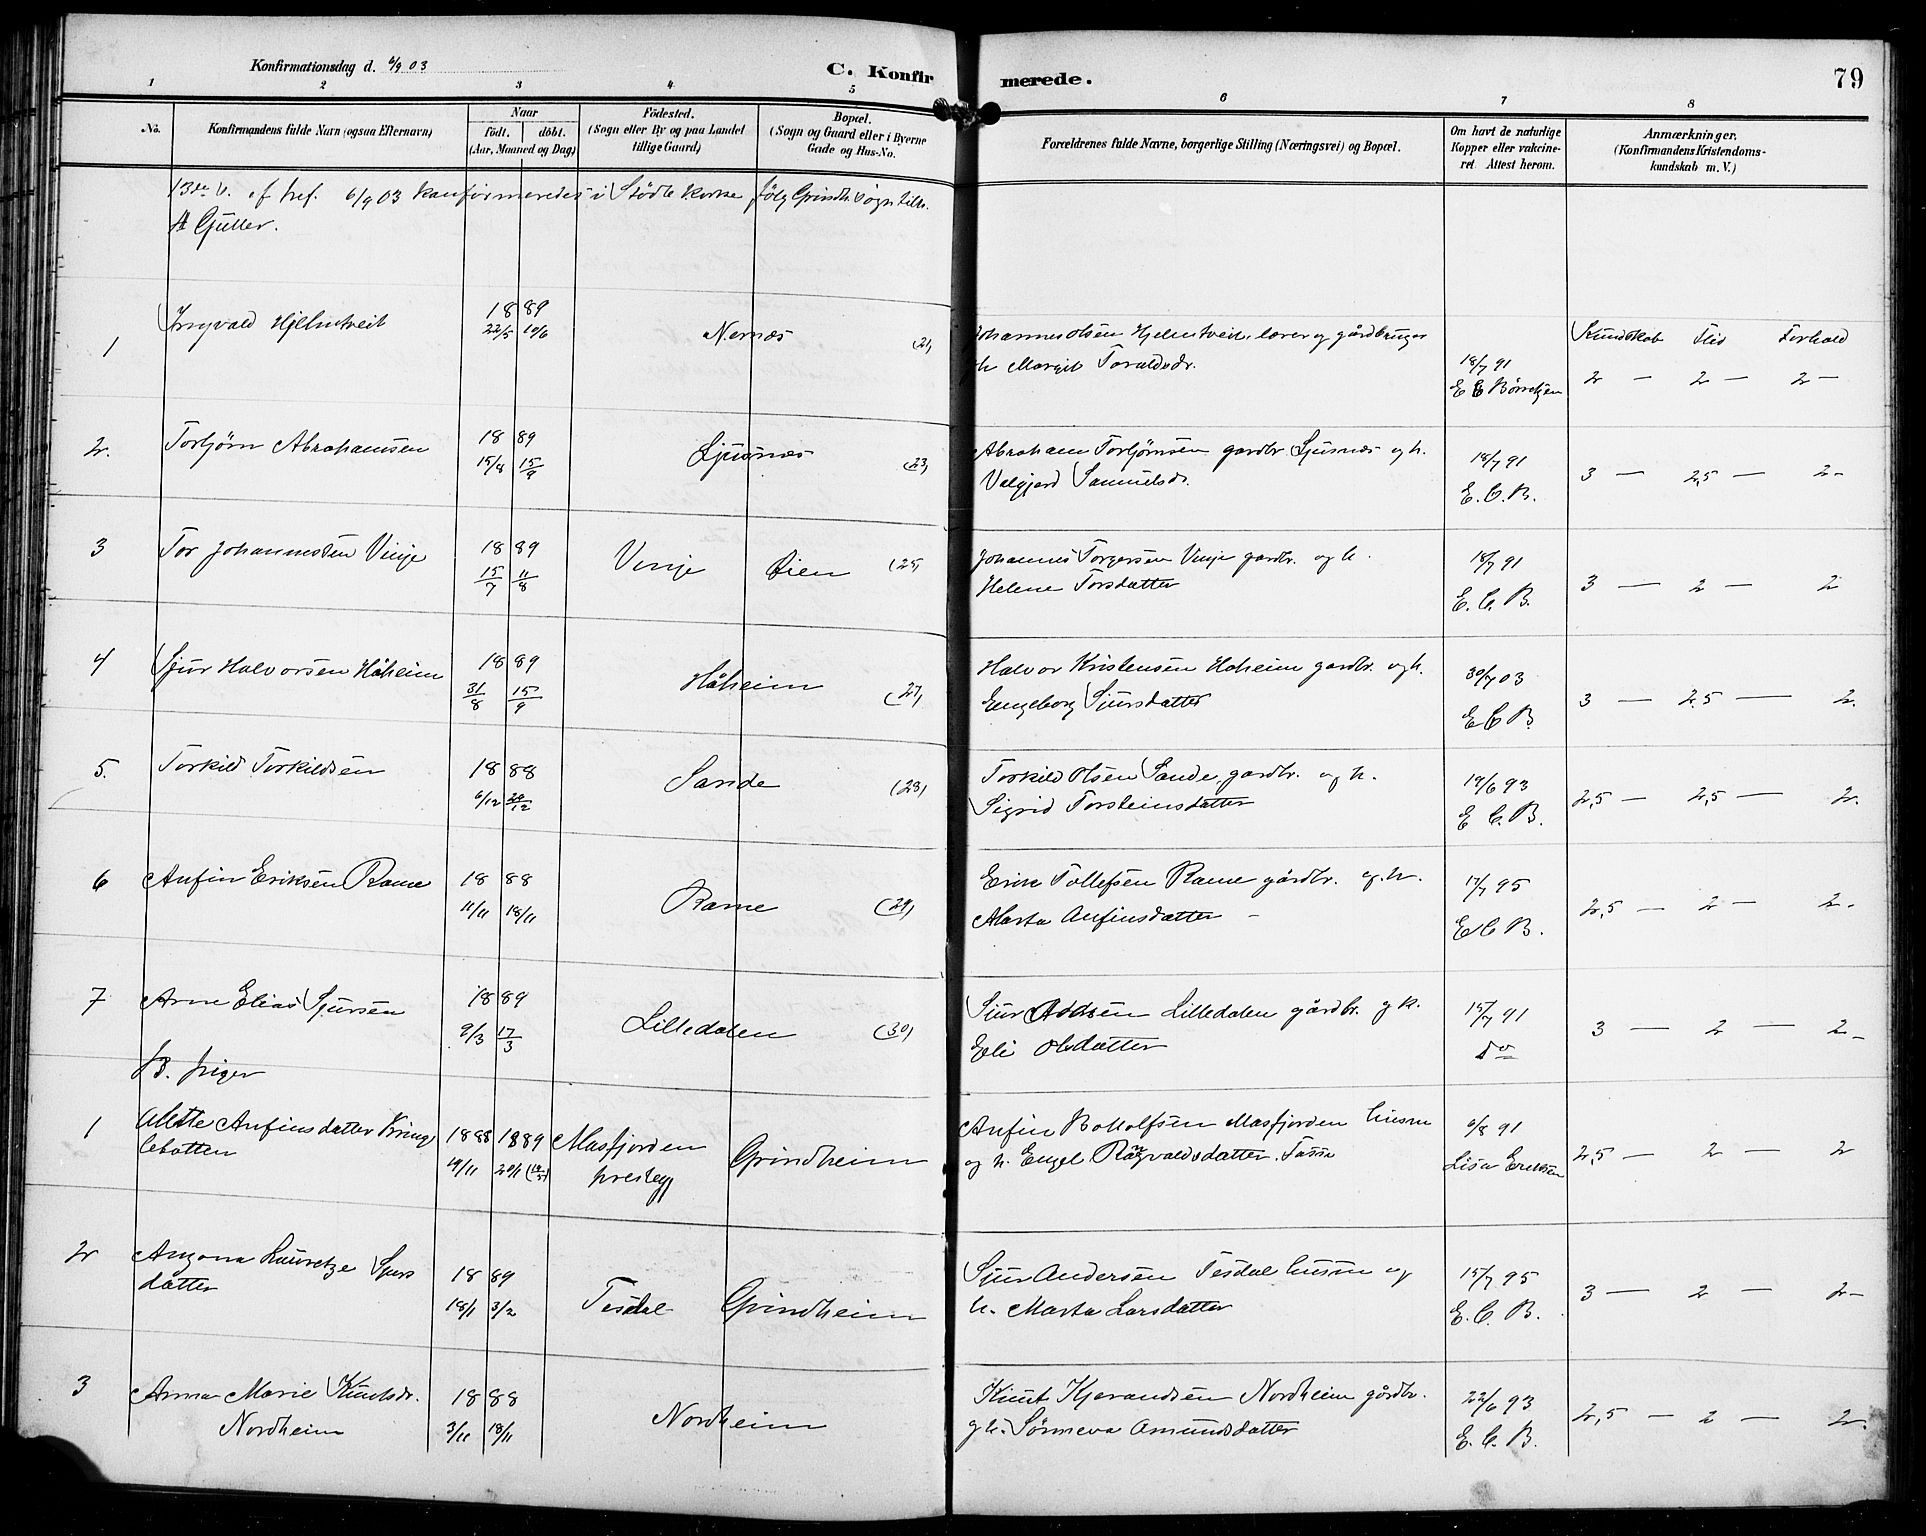 Konfirmationsdag d. 6/9 03
C. Konfirmerede.
79
1 2 3 4 5 6 7 8
No.
Konfirmandens fulde Navn (ogsaa Efternavn)
Naar
født. | døbt.
(Aar, Maaned og Dag)
Fødested.
(Sogn eller By og paa Landet
tillige Gaard)
Bopæl.
(Sogn og Gaard eller i Byerne
Gade og Hus-No.
Forældrenes fulde Navne, borgerlige Stilling (Næringsvei) og Bopæl.
Om havt de naturlige
Kopper eller vakcineret. Attest herom.
Anmærkninger.
(Konfirmandens Kristendomskundskab m. V.)
13de s. ef tref. 6/9 03 konfirmeredes i Stødle kirke følg Grindh. sogn tilh.
A Gutter.
Kundskab Flid Forhold
1 Ingvald Hjelmtveit 1889 22/5 10/6 Nernæs (21)
Johannes Olsen Hjelmtveit, lærer og gårdbruger
h Margit Toraldsdr. 18/7 91 E C Børretzen 2 — 2 — 2 —
2. Torbjørn Abrahamsen 1889 15/8 15/9 Ljusnæs (23)
Abraham Torbjørnsen gardbr. Ljusnæs og h.
Valgjerd Samuelsdr. 18/7 91 E. C. B. 3 — 2,5 — 2 -
3 Tor Johannessen Vinje 1889 15/7 11/8 Vinje Øien (25)
Johannes Torgersen Vinje gardbr. og h.
Helene Torsdatter 18/7 91 E. C. B. 3 — 2 — 2
4 Sjur Halvorsen Håheim 1889 31/8 15/9 Håheim (27)
Halvor Kristensen Haheim gardbr. og h.
Engeborg Sjursdatter 30/7 03 E C B 3 — 2.5 — 2.
5. Torkild Torkildsen 1888 6/12 26/12 Sande (28)
Torkild Olsen Sande, gardbr. og h.
Sigrid Torsteinsdatter 19/6 93 E C. B. 2,5 — 2,5 — 2.
6 Anfin Eriksen Rame 1888 11/11 18/11 Rame (29)
Erik Tollefsen Rame gårdbr. og h.
Marta Anfinsdatter - 17/7 95 E C B. 2,5 — 2 — 2 -
7 Arne Elias Sjursen 1889 9/3 17/3 Lilledalen (30)
Sjur Lilledalen gårdbr. og h.
Eli Olsdatter 15/7 91 do 3 — 2 — 2 -
B. piger
1 Mette Anfinsdatter Kringlebotten 1888 19/11 1889 20/1 Masfjorden prestegj Grindheim
Anfin Botholfsen Masfjorden husm
og h. Engel Ragnvaldsdatter. 6/8 91 Lisa Eriksen 2,5 — 2 — 2
2 Lauretze Sjursdatter 1889 18/1 3/2 Tesdal Grindheim
Sjur Andersen Tesdal husm og
h. Marta Larsdatter 15/7 95 E. C. B. 3 — 2 — 2 -
3 Anna Marie Knutsdr.
Nordheim 1888 3/11 18/11 Nordheim
Knut Kjerandsen Nordheim gårdbr.
g h. Sønneva Amundsdatter 22/6 93 E. C. B. 2,5 — 2 — 2.